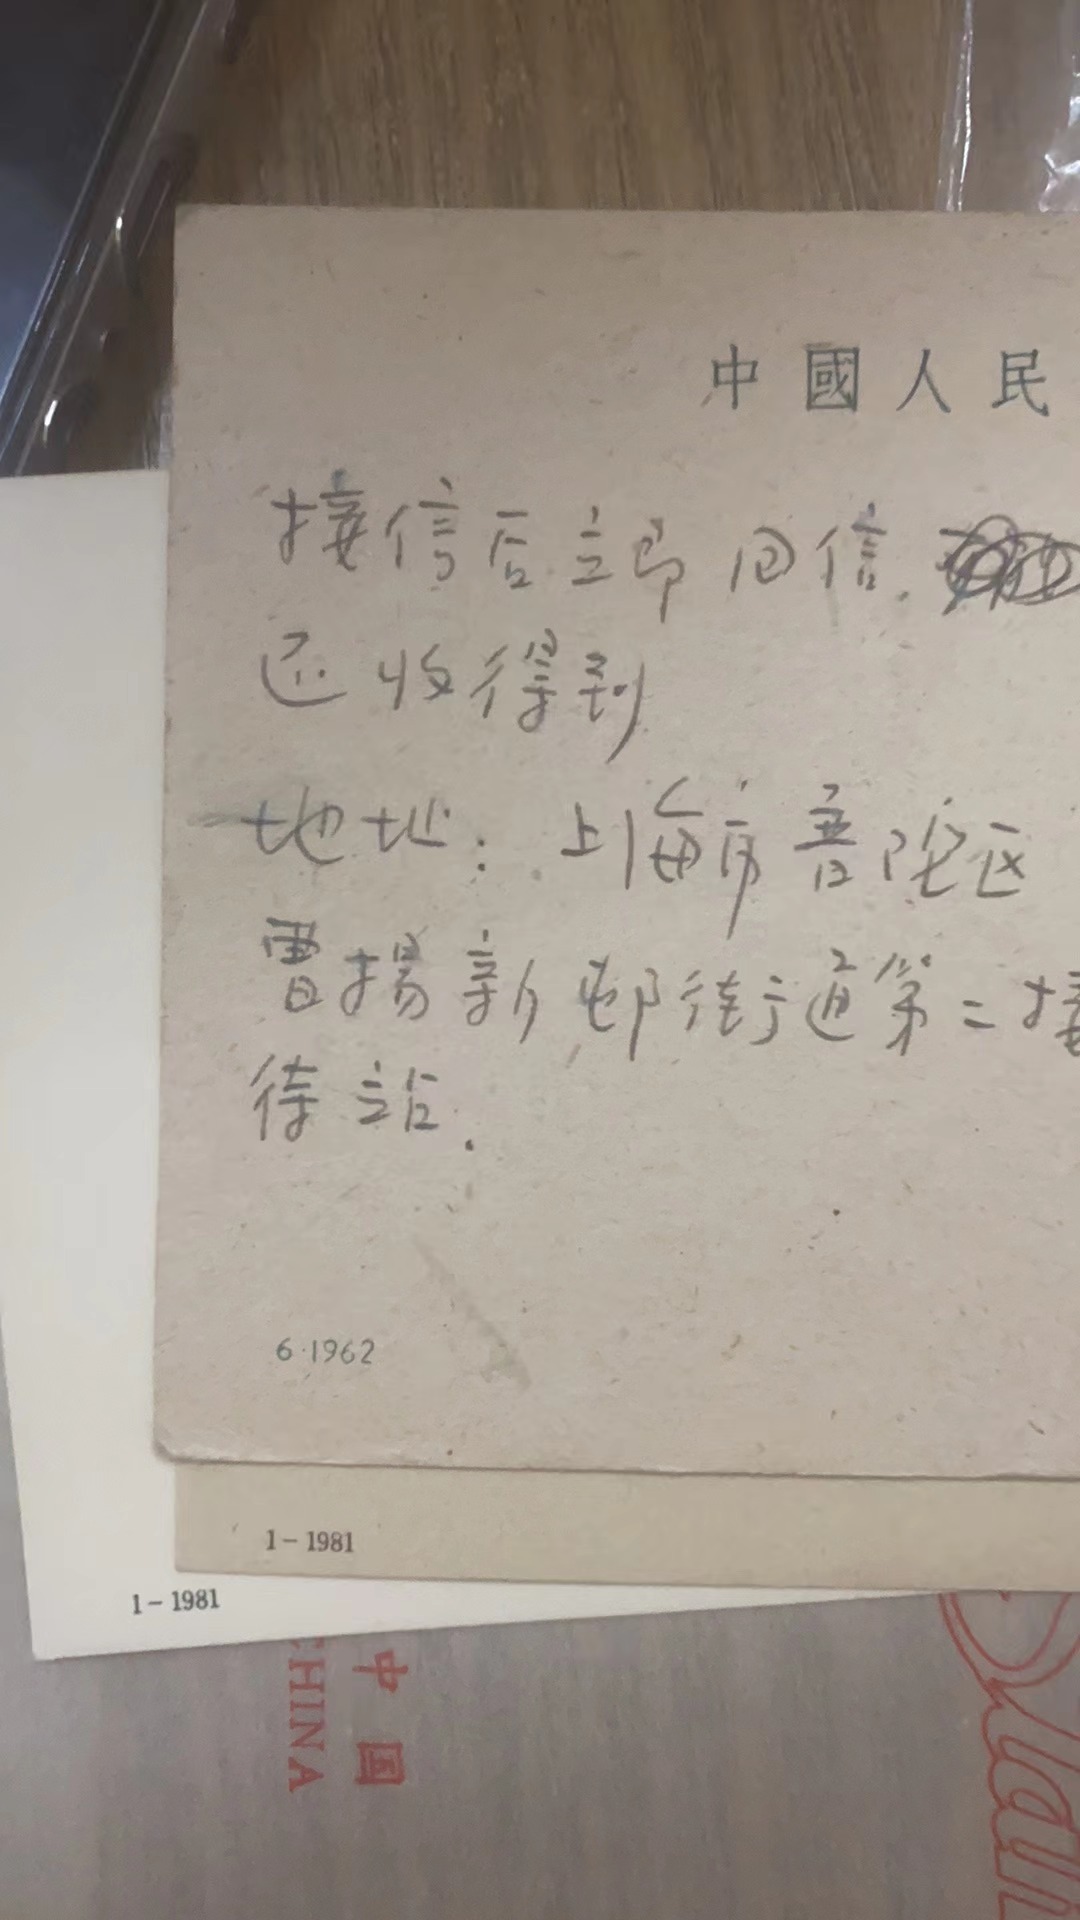 中國人民
接信后立即回信.
还收得到
地址: 上海市普陀区
曹揚新邨街道第二接
待站.
6·1962
1-1981
1-1981
中国
CHINA